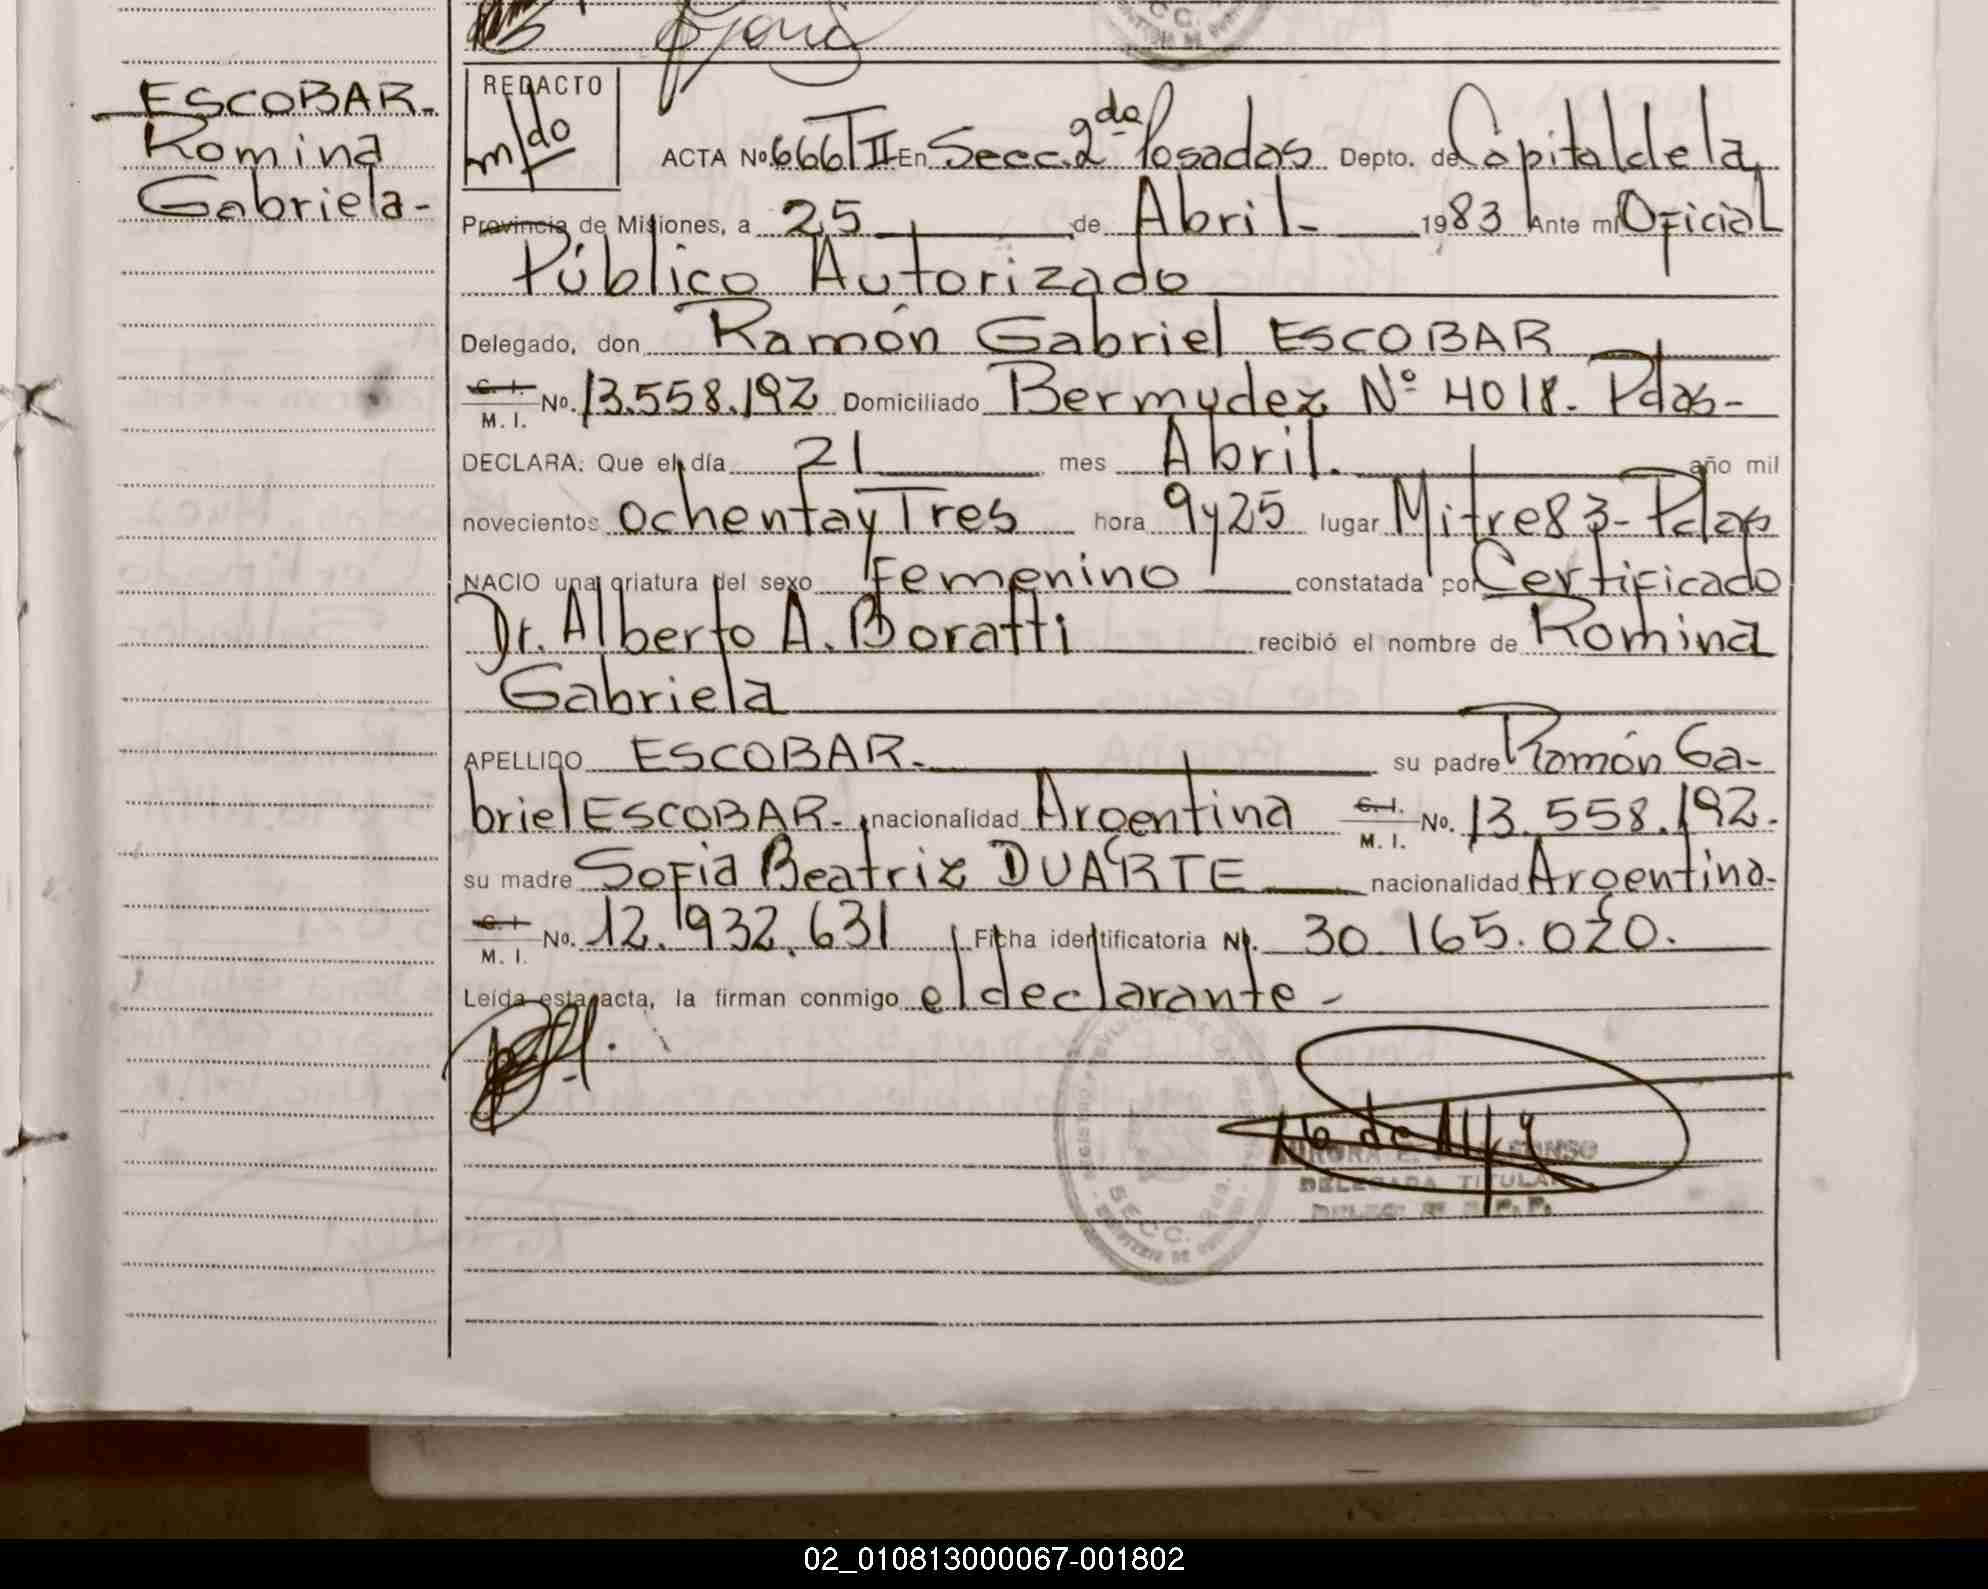 ESCOBAR.
Romina
Gabriela-
REDACTO
m/do
ACTA No. 666 T II En Secc. 2da Posadas Depto. de Capital de la
Provincia de Misiones, a 25 de Abril- 1983 Ante mi Oficial
Público Autorizado
Delegado, don Ramón Gabriel ESCOBAR
C. I.
M. I. No. 13.558.192 Domiciliado Bermudez Nº 4018. Pdas-
DECLARA: Que el día 21 mes Abril. año mil
novecientos ochenta y Tres hora 9 y 25 lugar Mitre 83- Pdas
NACIO una criatura del sexo Femenino constatada por Certificado
Dr. Alberto A. Boratti recibió el nombre de Romina
Gabriela
APELLIDO ESCOBAR. su padre Ramón Ga-
briel ESCOBAR-. nacionalidad Argentina C. I.
M. I. No. 13.558.192.
su madre Sofia Beatriz DUARTE nacionalidad Argentina.
C. I.
M. I. No. 12.932.631 Ficha identificatoria N. 30 165.020.
Leída esta acta, la firman conmigo el declarante-
SECC.
DELEGADA TITULAR
02_010813000067-001802